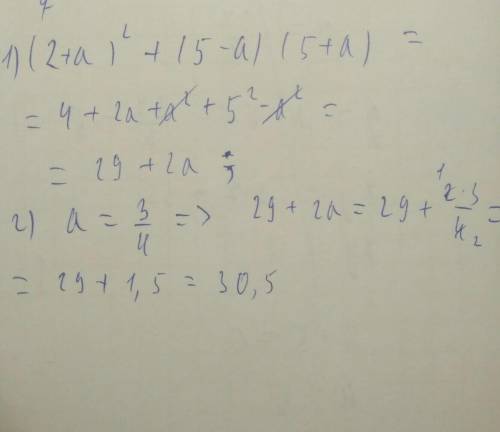 1) (2+a)² + (5-a) (5+a) =
= 4 + 2a + a² + 5² - a² =
= 29 + 2a ;
2) a = 3/4 => 29 + 2a = 29 + 2·3/4 =
= 29 + 1,5 = 30,5